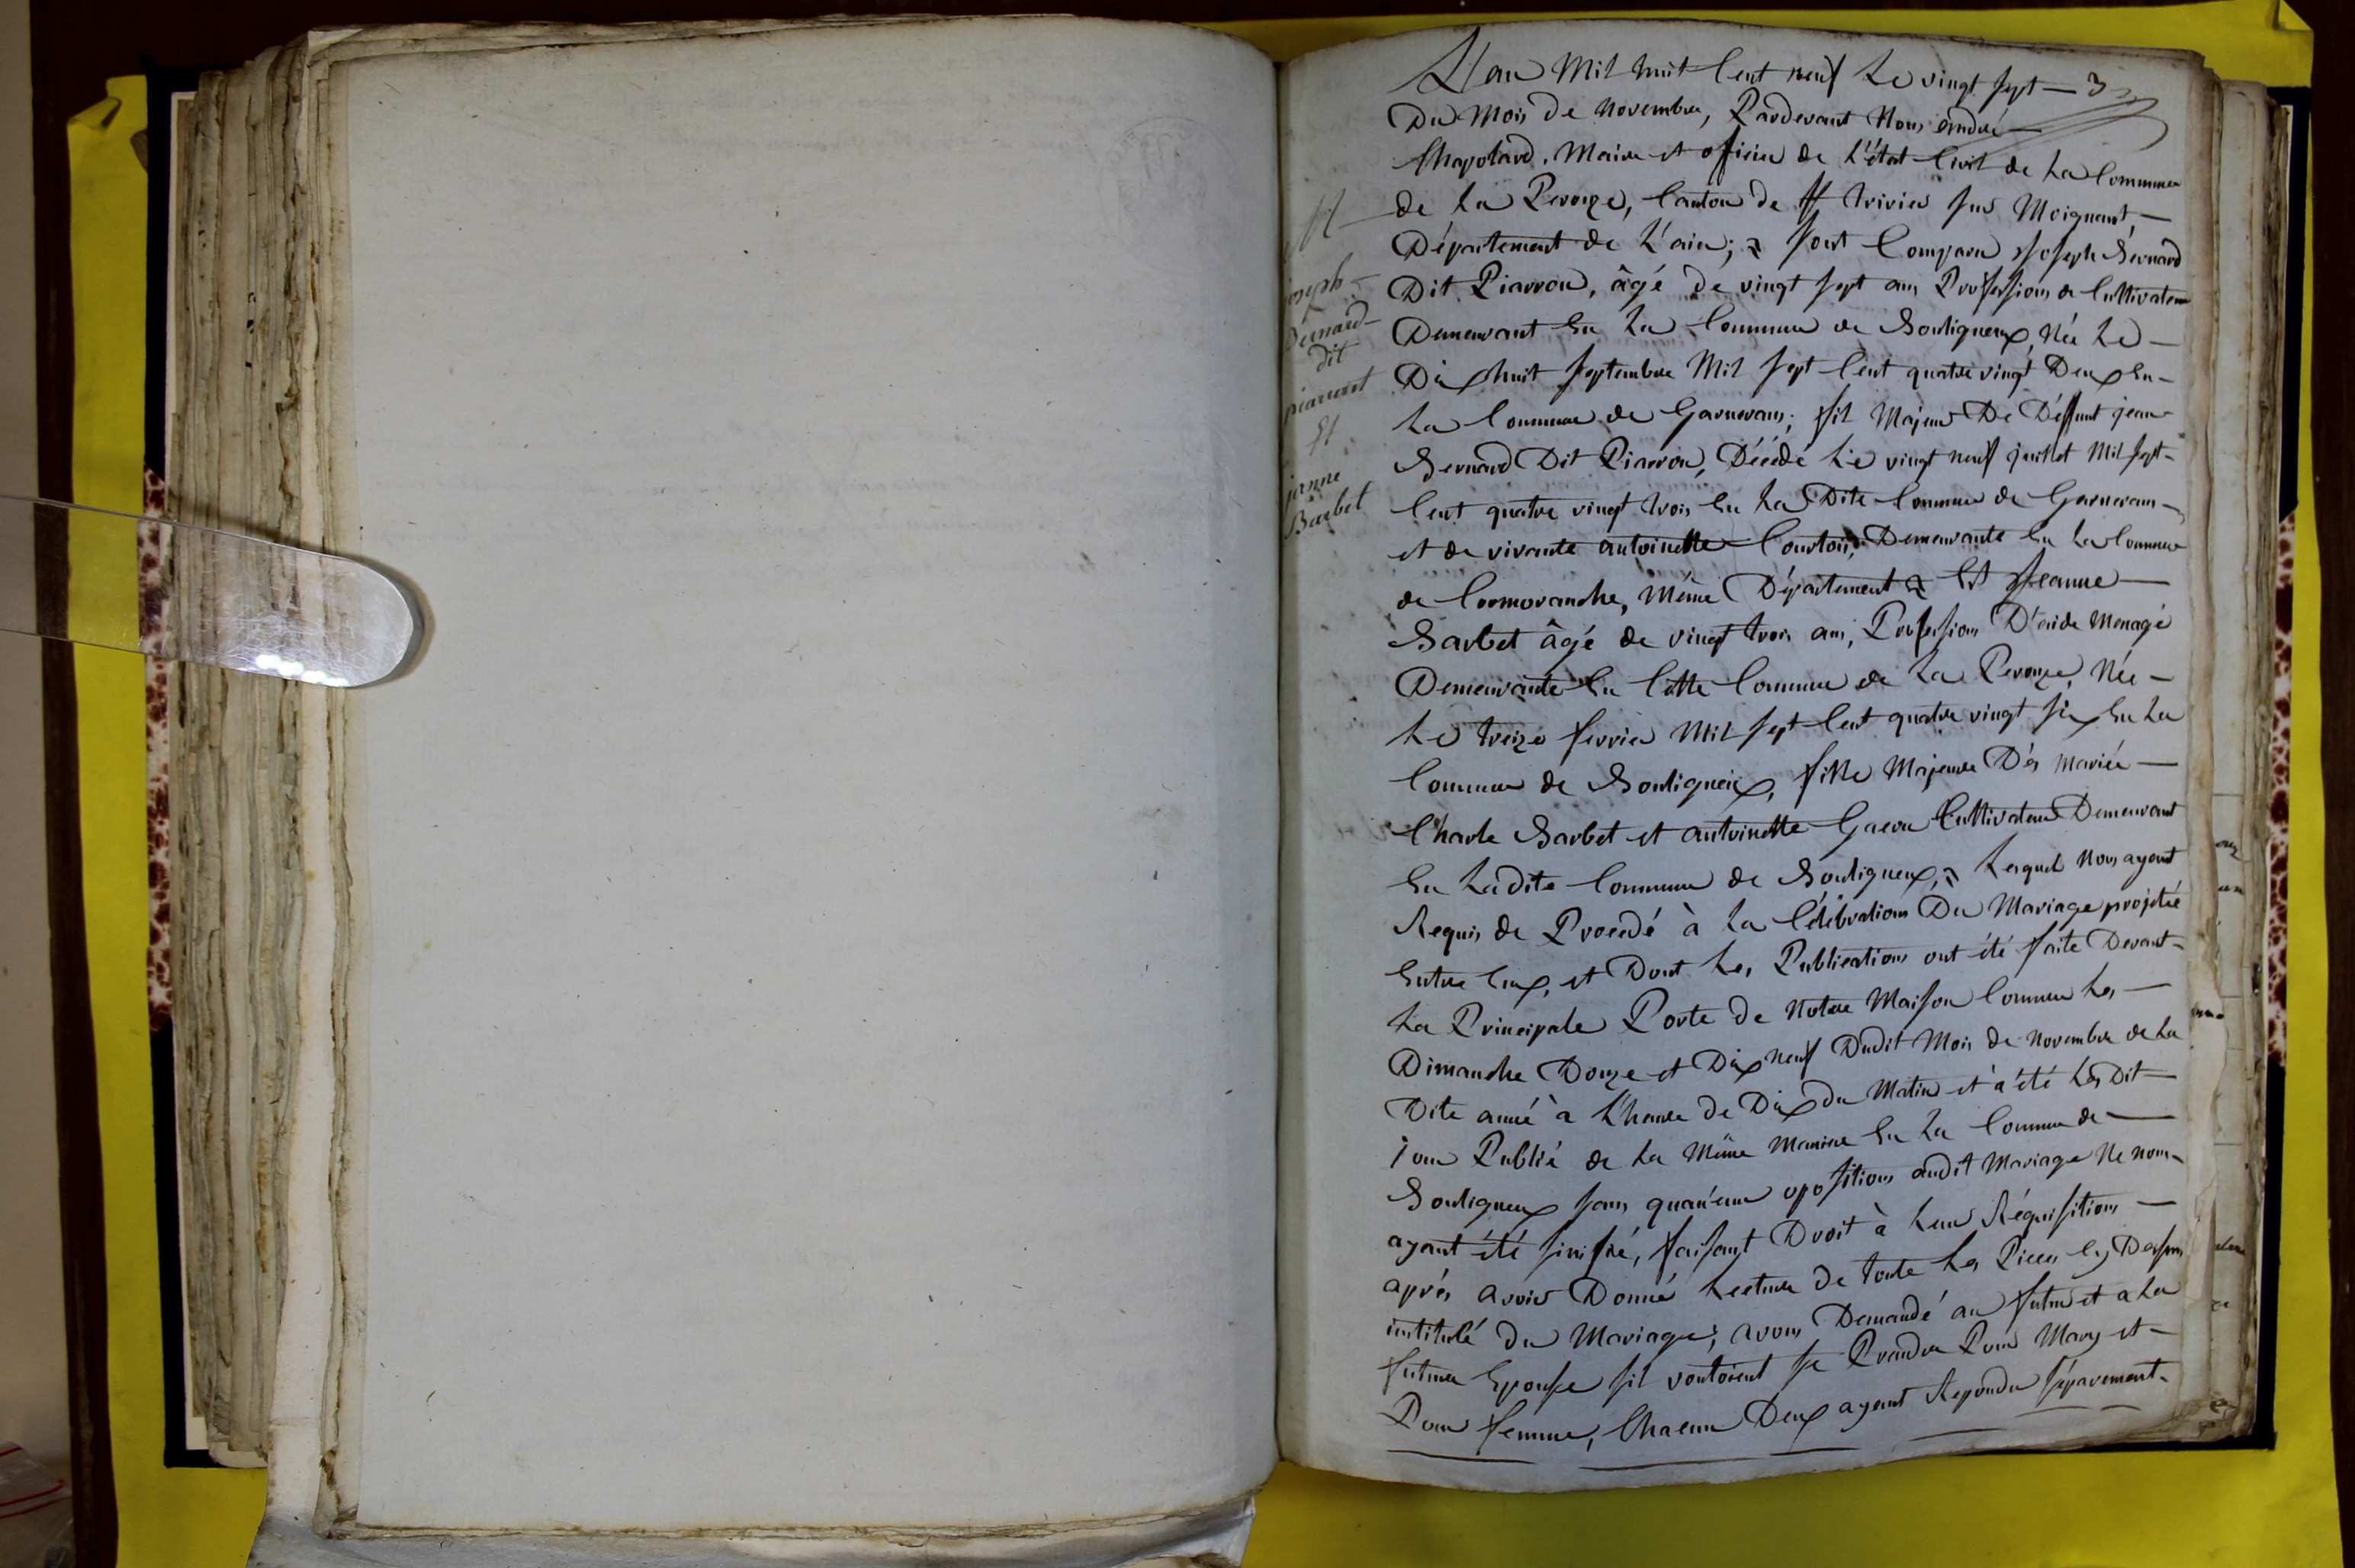 L'an Mil huit Cent neuf Le vingt sept — 3
Du Mois De Novembre, Pardevant Nous andré —
Chapolard, Maire et oficier de L'état Civil de La Commune
de La Perouze, Canton de St Trivier sur Moignant —
Département de L'ain; sont Comparu Joseph Bernard
Dit Piarron, âgé de vingt sept ans Profession de Cultivateur
Demeurant En La Commune de Bouligneux, Née Le —
Dix huit septembre Mil sept Cent quatre vingt Deux En —
La Commune de Garnerans; fil Majeur De Deffunt jean
Bernard Dit Piarron, Décédé Le vingt neuf juillet Mil sept-
Cent quatre vingt trois En La Dite Commune de Garnerans —
et de vivante antoinette Courtois, Demeurante En La Commune
de Cormoranche, Même Département Et Jeanne —
Barbet âgé de vingt trois ans, Profession D'aide Menagé
Demeurante En Cette Commune de La Perouze, Née —
Le treize fevrier Mil sept Cent quatre vingt six En La
Commune de Bouligneix, fille Majeure Dés Mariée —
Charle Barbet et antoinette Cultivateur Demeurant
En Ladite Commune de Bouligneux, Lesquel Nous ayent
Requis de Procedé à La Célébration Du Mariage projetée
Entre Eux, et Dont Les Publications ont été faite Devant-
La Principale Porte De Notre Maison Commune Les —
Dimanche Douze et Dix neuf Dudit Mois de Novembre de La
Dite année à L'heure De Dix du Matin et a été Les Dit —
jour Publié de La Même Maniere En La Commune de —
Bouligneux sans quaucune oposition audit Mariage Ne nous-
ayant été sinifié, faisant Droit à Leur Réquisition —
aprés avoir Donné Lecture de toute Les Pieces Cy Dessus
intitulé Du Mariage; avons Demandé au futur et a La
future Epouse sil vouloient se Prendre Pour Mary et —
Pour femme, Chacun Deux ayent Repondu séparement-
joseph —
Bernard —
dit
piarront
Et
janne
Barbet